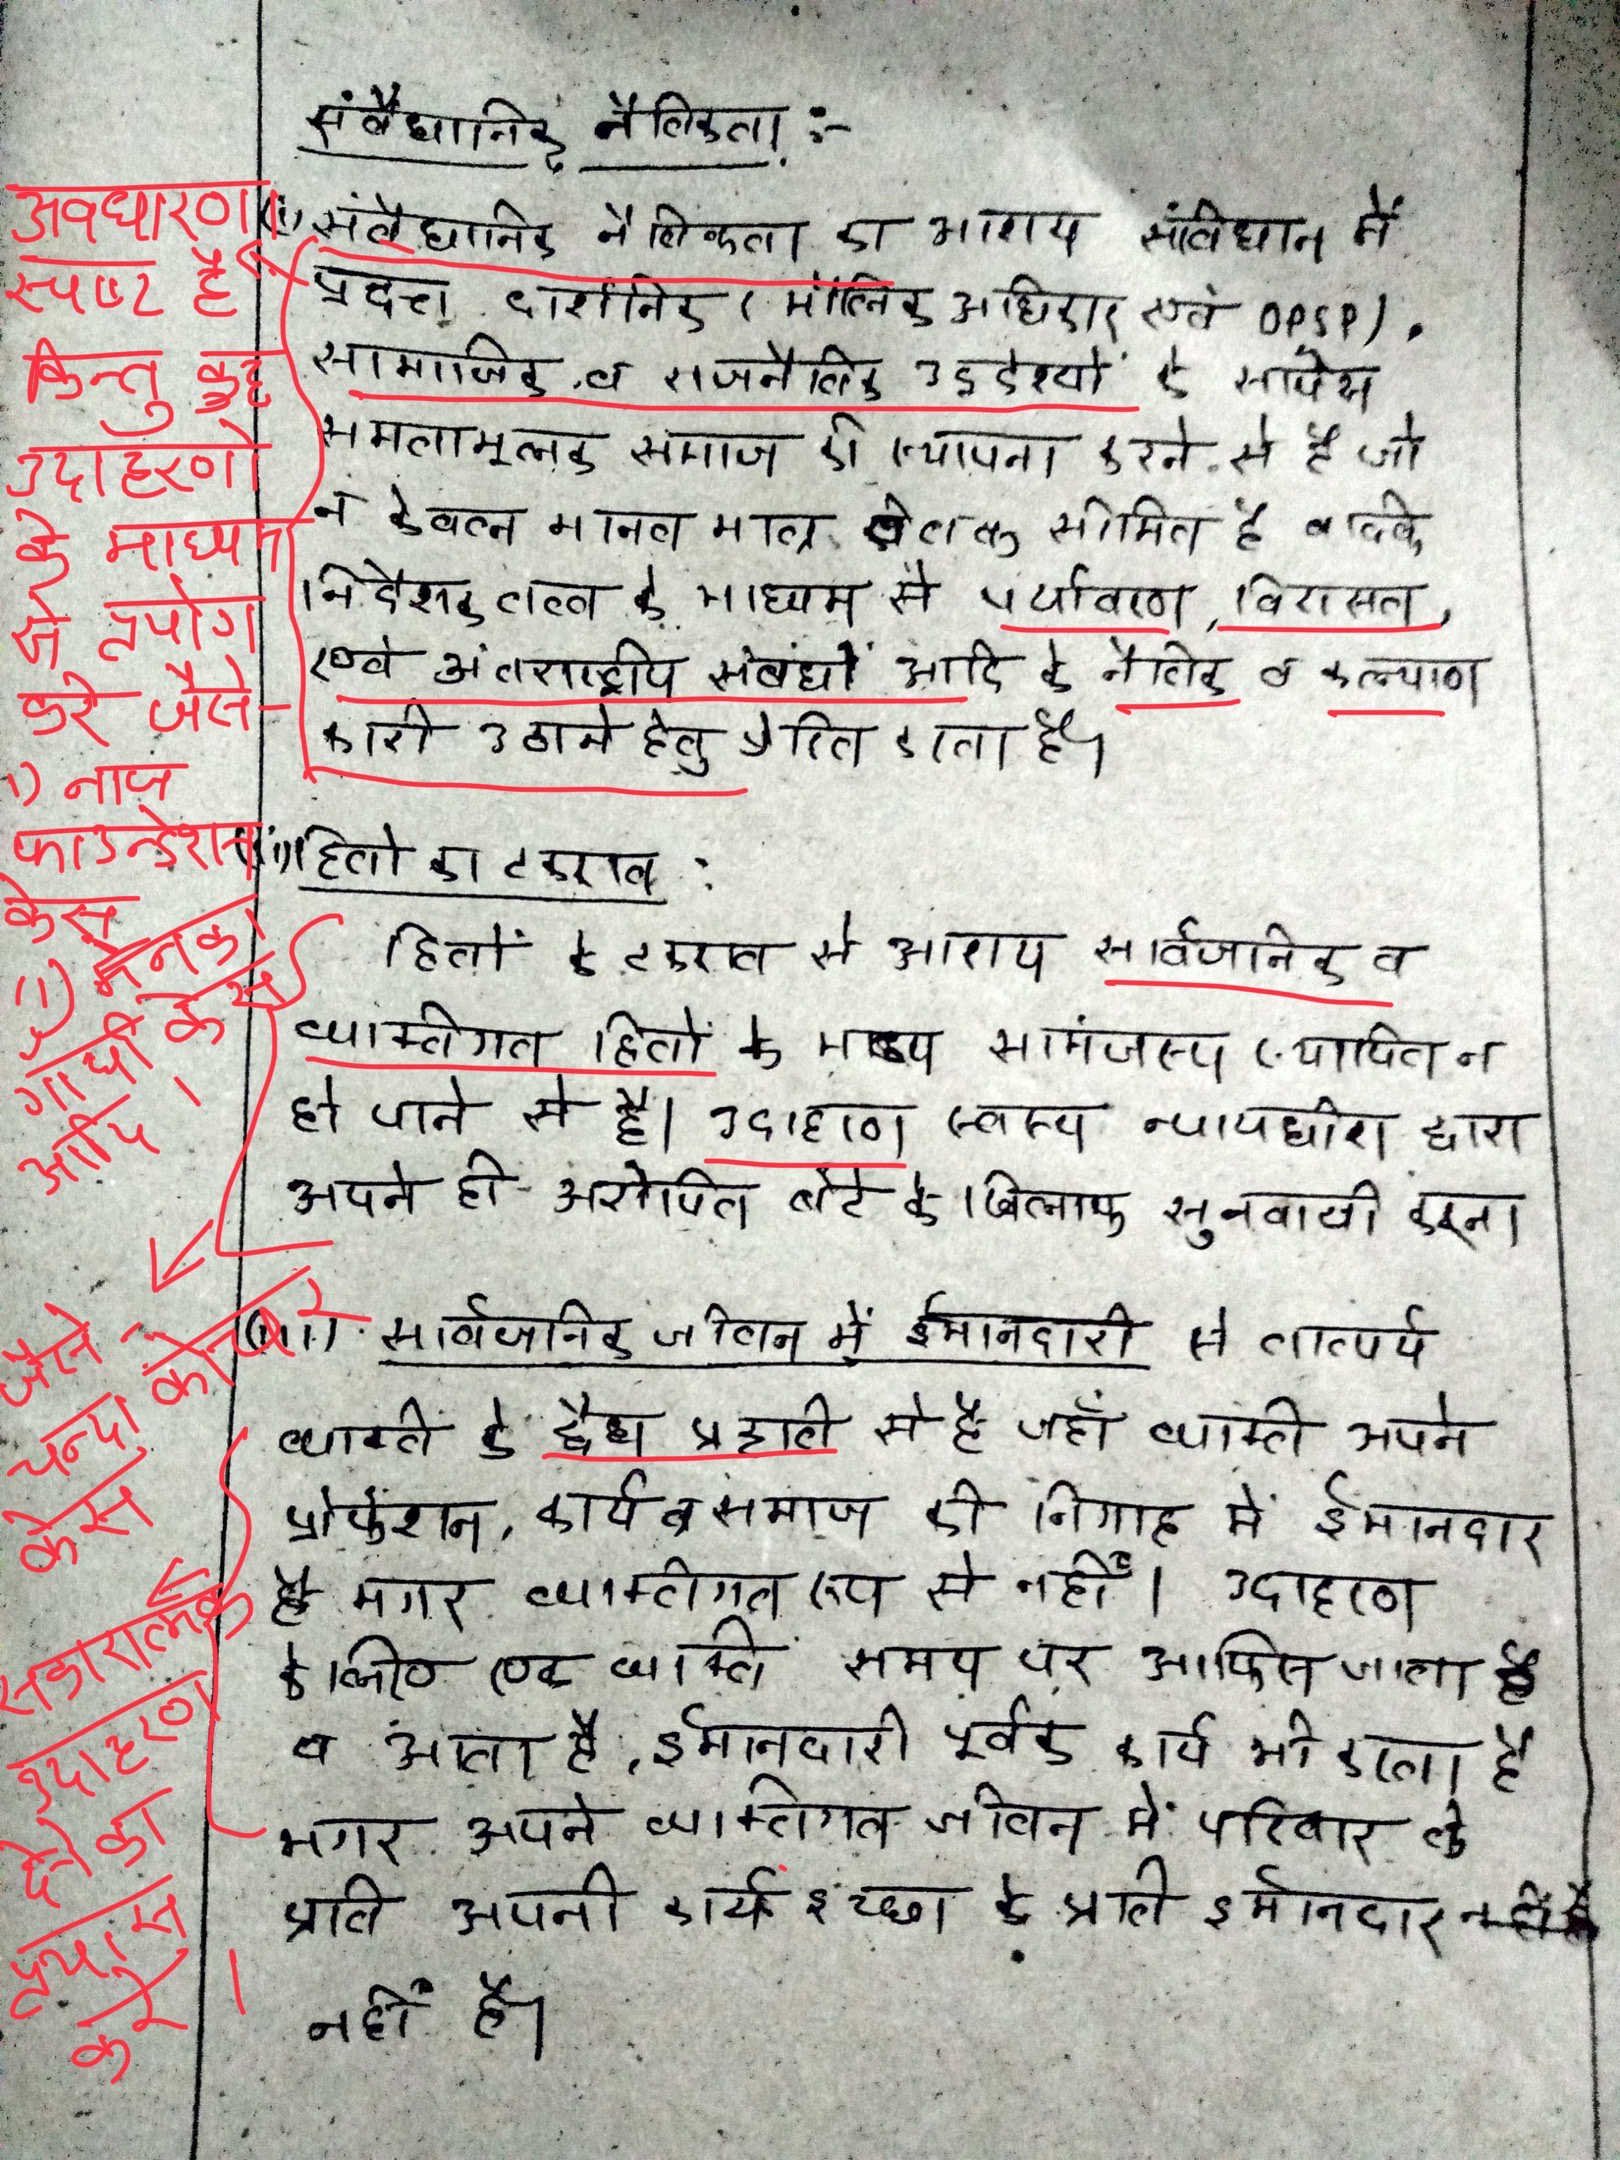 संवैधानिक नैतिकता :-
(i) संवैधानिक नैतिकता का आशय संविधान में
प्रदत्त दार्शनिक (मौलिक अधिकार एवं DPSP),
सामाजिक व राजनैतिक उद्देश्यों के सापेक्ष
समतामूलक समाज की स्थापना करने से है जो
न केवल मानव मात्र तक सीमित है बल्कि
निदेशक तत्व के माध्यम से पर्यावरण, विरासत,
एवं अंतराष्ट्रीय संबंधों आदि के नैतिक व कल्याण
कारी उठाने हेतु प्रेरित करता है।
(ii) हितो का टकराव :
हितों के टकराव से आशय सार्वजनिक व
व्यक्तिगत हितों के मध्य सामंजस्य स्थापित न
हो पाने से है। उदाहरण स्वरूप न्यायधीश द्वारा
अपने ही आरोपित बेटे के खिलाफ सुनवायी करना
(iii) सार्वजनिक जीवन में ईमानदारी से तात्पर्य
व्यक्ति के द्वैध प्रकृति से है जहाँ व्यक्ति अपने
प्रोफेशन, कार्य व समाज की निगाह में ईमानदार
है मगर व्यक्तिगत रूप से नहीं। उदाहरण
के लिए एक व्यक्ति समय पर आफिस जाता है
व आता है, ईमानदारी पूर्वक कार्य भी करता है
मगर अपने व्यक्तिगत जीवन में परिवार के
प्रति अपनी कार्य इच्छा के प्रति ईमानदार
नहीं है।
अवधारणा
स्पष्ट है
किन्तु कुछ
उदाहरणो
के माध्यम
से प्रयोग
करे जैसे-
i) नाज
फाउन्डेशन
केस
ii) मेनका
गाँधी केस
आदि।
जैसे-
चन्दा कोचर
केस
सकारात्मक
उदाहरण
देने का
प्रयास
करे।